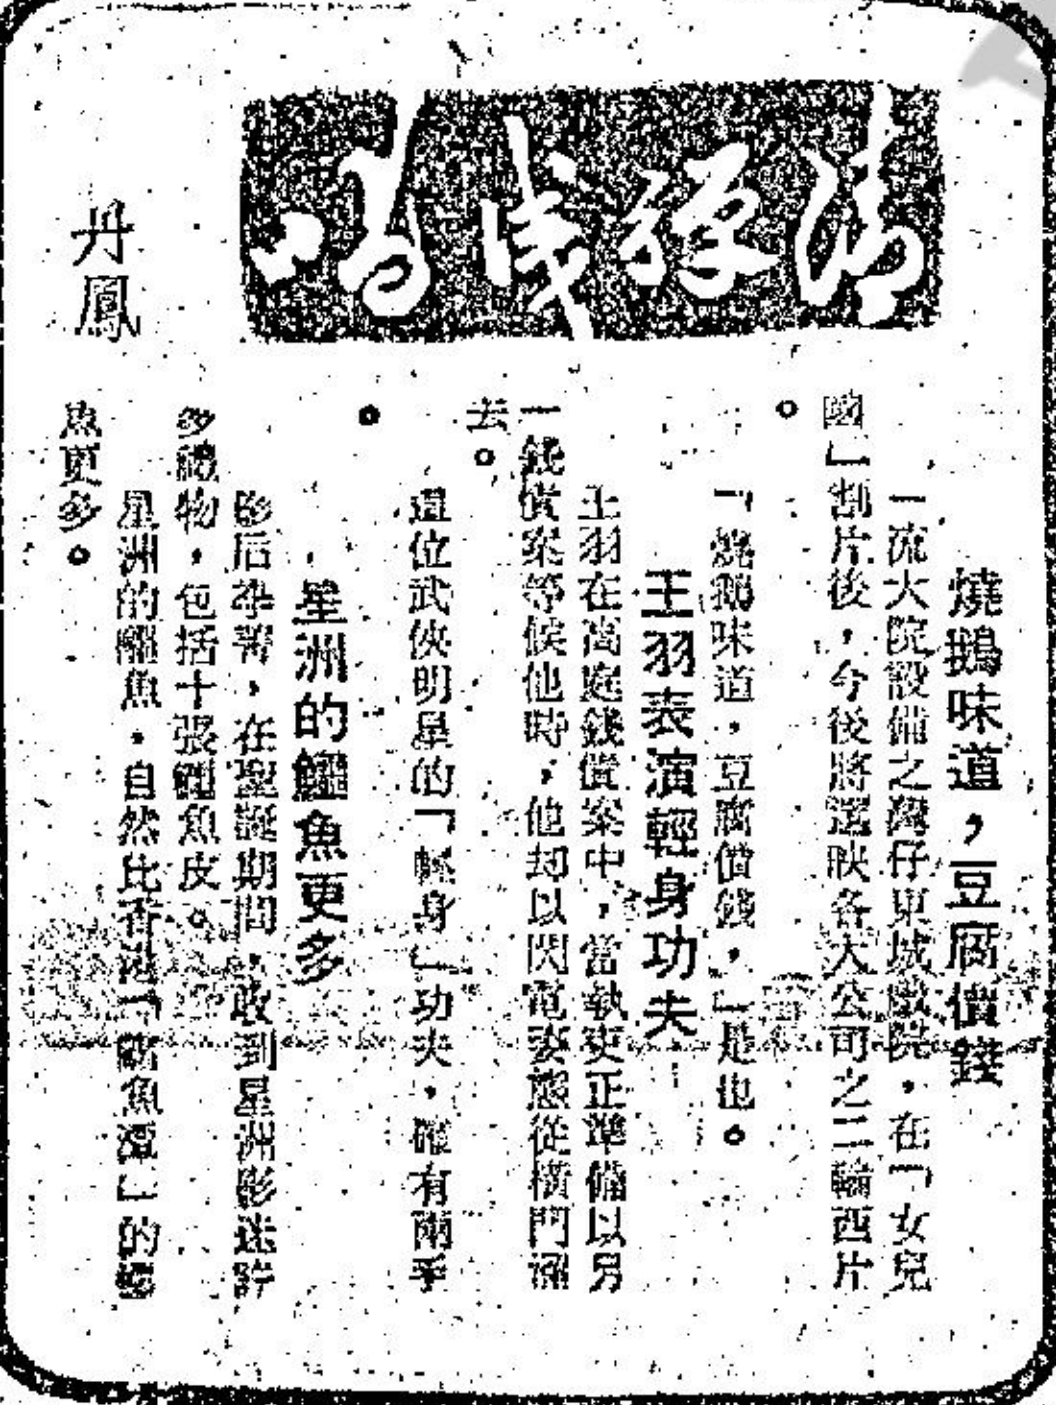 丹鳳
燒鵝味道，豆腐價錢
一流大院設備之灣仔東城戲院，在「女兒
國」割片後，今後將選映各大公司之二輪西片
。
「燒鵝味道，豆腐價錢，」是也。
王羽表演輕身功夫
王羽在高庭錢債案中，當執吏正準備以另
一錢債案等候他時，他却以閃電姿態從橫門溜
去。
這位武俠明星的「輕身」功夫，確有兩手
。
星洲的鱷魚更多
影后李菁，在聖誕期間，收到星洲影迷許
多禮物，包括十張鱷魚皮。
星洲的鱷魚，自然比香港「鱷魚潭」的鱷
魚更多。